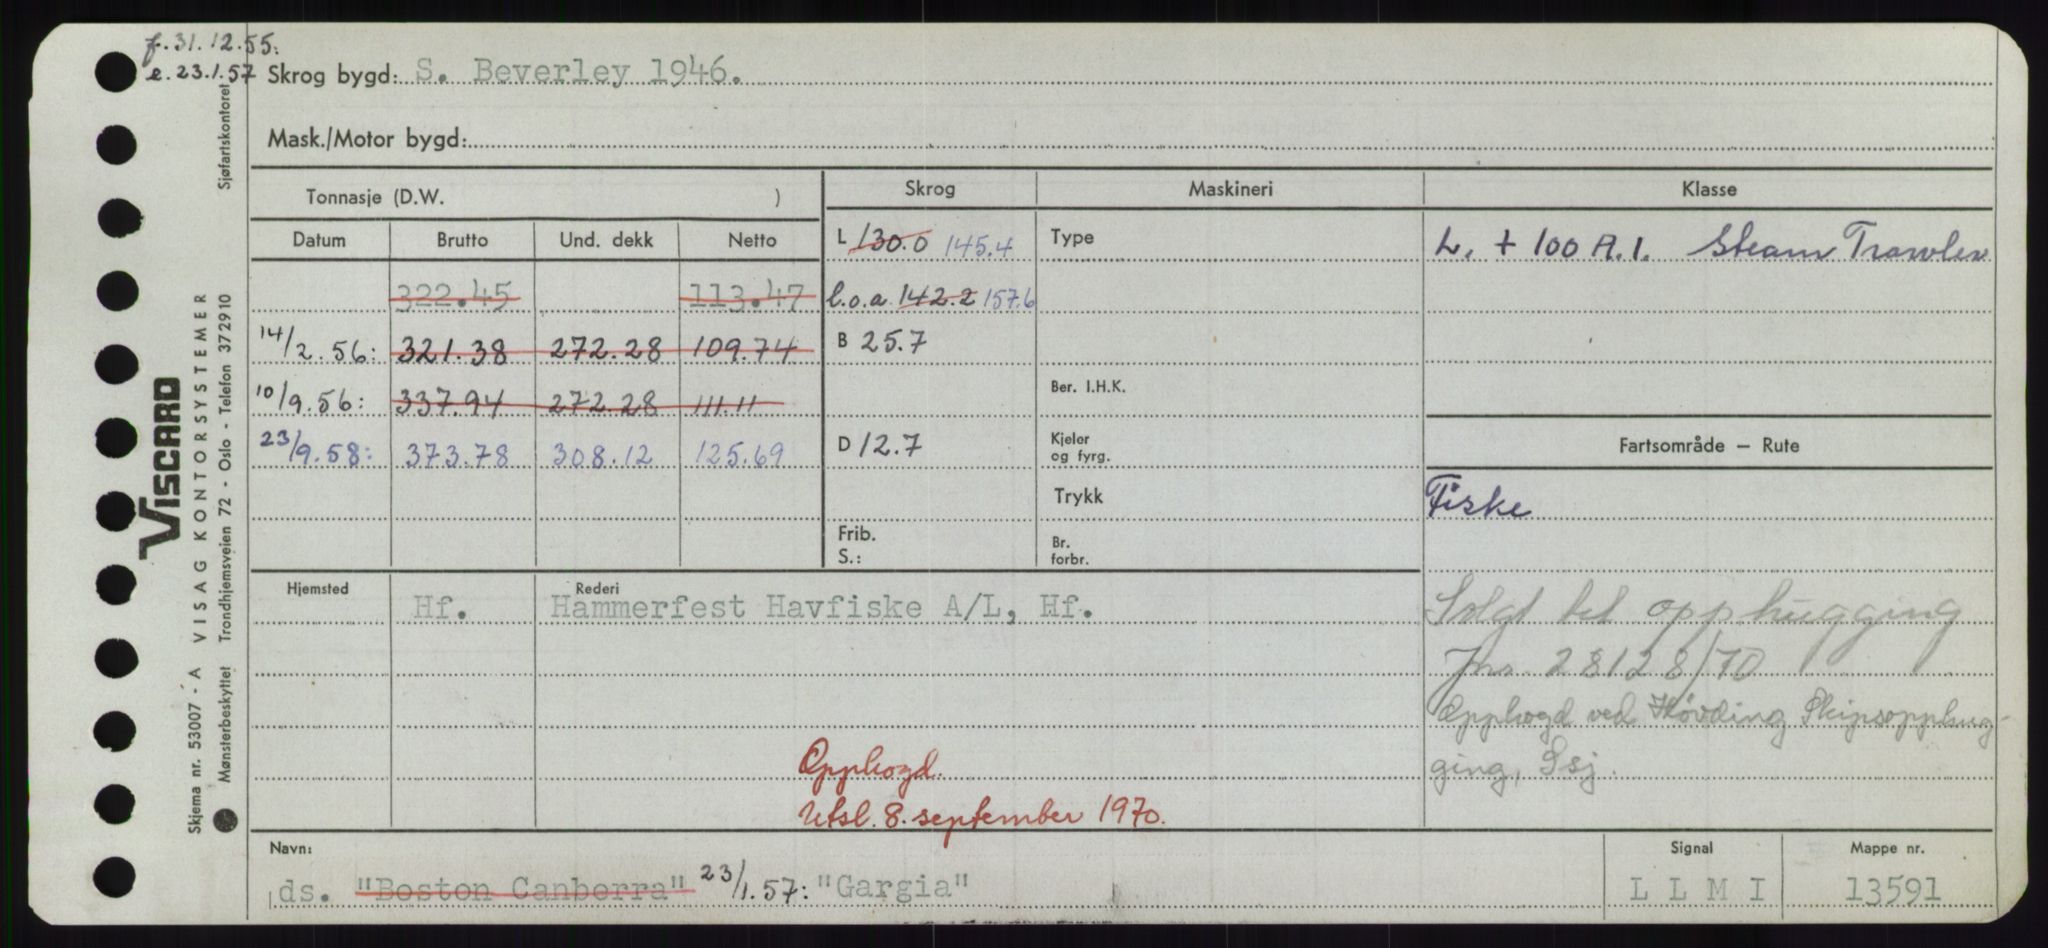 f. 31.12.55:
e. 23.1.57 Skrog bygd: S. Beverley 1946.
Mask./Motor bygd:
Tonnasje (D.W. )
Skrog Maskineri Klasse
Datum Brutto Und. dekk Netto
L 130.0 145.4 Type L. + 100 A.1. Steam Trawler
322.45 113.47
l.o.a. 142.2 157.6
14/2.56: 321.38 272.28 109.74
B 25.7
10/9.56: 337.94 272.28 111.11
Ber. I.H.K.
23/9.58: 373.78 308.12 125.69
D 12.7 Kjeler
og fyrg.
Fartsområde — Rute
Trykk Fiske
Frib.
S.:
Br.
forbr.
Hjemsted Rederi
Hf. Hammerfest Havfiske A/L, Hf.
Solgt til opphugging
Jnr. 28128/70
Opphogd ved Høvding Skipsopphug-
ging, Ssj.
Opphogd.
Utsl. 8. september 1970.
Navn: Signal Mappe nr.
ds. "Boston Canberra" 23/1.57: "Gargia" LLMI 13591
Sjøfartskontoret
VISCARD
Skjema nr. 53007 - A VISAG KONTORSYSTEMER
Mønsterbeskyttet Trondhjemsveien 72 - Oslo - Telefon 372910